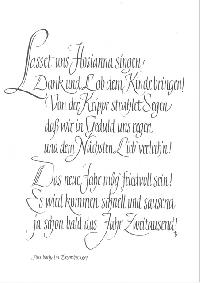 Lasset uns Hosianna singen
Dank und Lob dem Kinde bringen!
Von der Krippe strahlet Segen
daß wir in Geduld uns regen
und dem Nächsten Lieb' verleih'n!
Das neue Jahr mög' friedvoll sein!
Es wird kommen schnell und sausend
ja schon bald das Jahr Zweitausend!